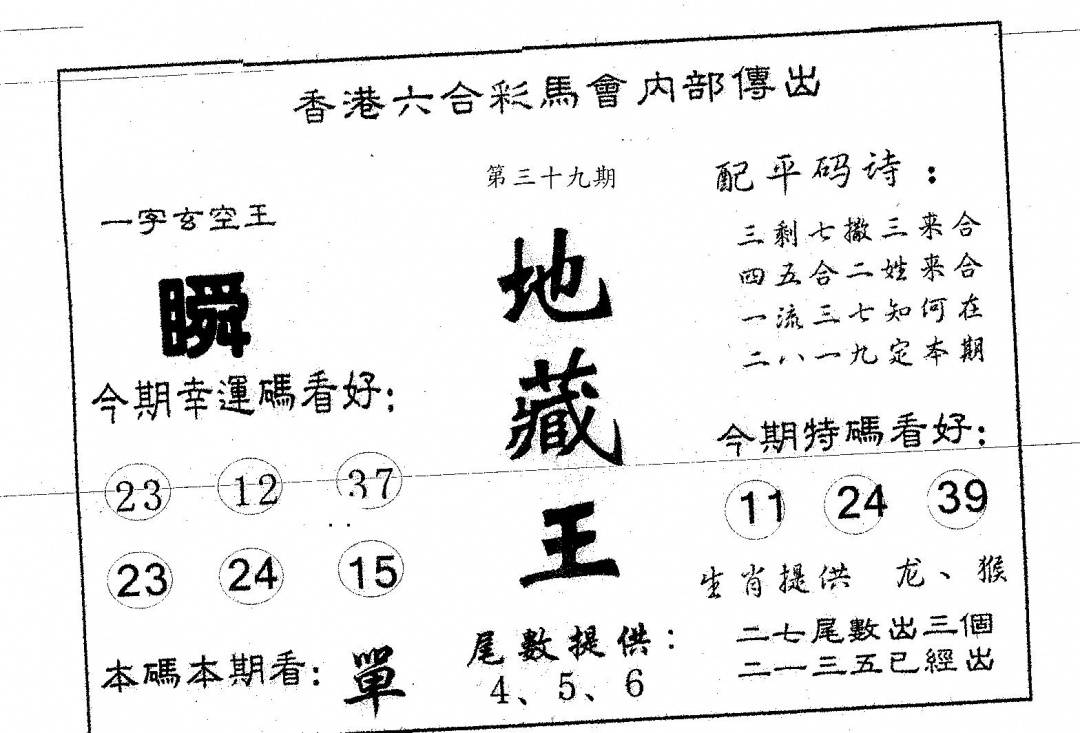 香港六合彩馬會内部傳出
第三十九期
一字玄空王
瞬
今期幸運碼看好:
23 12 37
23 24 15
本碼本期看: 單
地
藏
王
尾數提供:
4、5、6
配平码诗:
三剩七撒三来合
四五合二姓来合
一流三七知何在
二八一九定本期
今期特碼看好:
11 24 39
生肖提供 龙、猴
二七尾數出三個
二一三五已經出